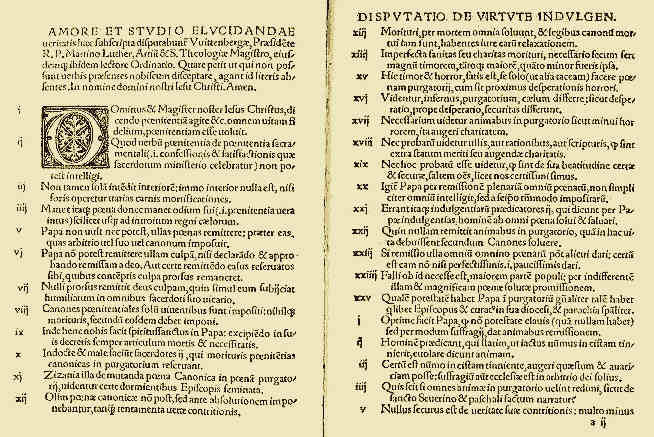 AMORE ET STVDIO ELVCIDANDAE
ueritatis hæc subscripta disputabunť Vuittenbergæ, Præsidẽte
R. P. Martino Luther, Artiũ & S. Theologiæ Magistro, eius-
demq; ibidem lectore Ordinario. Quare petit ut qui non pos-
sunt uerbis præsentes nobiscum disceptare, agant id literis ab-
sentes. In nomine domini nostri Iesu Christi. Amen.
i DOminus & Magister noster Iesus Christus, di-
cendo pœnitentiã agite &c. omnem uitam fi-
delium, pœnitentiam esse uoluit.
ij Quod uerbũ pœnitentia de pœnitentia sacra-
mentali (.i. confessiõis & satisfactiõis quæ
sacerdotum ministerio celebratur) non po-
test intelligi.
iij Non tamen solã intẽdit interiorẽ: immo interior nulla est, nisi
foris operetur uarias carnis mortificationes.
iiij Manet itaq; pœna donec manet odium sui (.i. pœnitentia uera
intus) scilicet usq; ad introitum regni cœlorum.
v Papa non uult nec potest, ullas pœnas remittere: præter eas,
quas arbitrio uel suo uel canonum imposuit.
vj Papa nõ potest remittere ullam culpã, nisi declarãdo & appro-
bando remissam a deo. Aut certe remittẽdo casus reseruatos
sibi, quibus contẽptis culpa prorsus remaneret.
vij Nulli prorsus remittit deus culpam, quin simul eum subijciat
humiliatum in omnibus sacerdoti suo uicario.
viij Canones pœnitentiales solũ uiuentibus sunt impositi: nihilq;
morituris, secundũ eosdem debet imponi.
ix Inde bene nobis facit spiritussanctus in Papa: excipiẽdo in su-
is decretis semper articulum mortis & necessitatis.
x Indocte & male faciũt sacerdotes ij, qui morituris pœnitẽtias
canonicas in purgatorium reseruant.
xj Zizania illa de mutanda pœna Canonica in pœnã purgato-
rij, uidentur certe dormientibus Episcopis seminata.
xij Olim pœnæ canonicæ nõ post, sed ante absolutionem impo-
nebantur, tanq̃ tentamenta ueræ contritionis.
DISPVTATIO DE VIRTVTE INDVLGEN.
xiij Morituri, per mortem omnia soluunt, & legibus canonũ mor-
tui iam sunt, habentes iure earũ relaxationem.
xiiij Imperfecta sanitas seu charitas morituri, necessario secum fert
magnũ timorem, tãtoq; maiorẽ, quãto minor fuerit ipsa.
xv Hic timor & horror, satis est, se solo (ut alia taceam) facere pœ-
nam purgatorij, cum sit proximus desperationis horrori.
xvj Videntur, infernus, purgatorium, cælum differre: sicut despe-
ratio, prope desperatio, securitas differunt.
xvij Necessarium uidetur animabus in purgatorio sicut minui hor-
rorem, ita augeri charitatem.
xviij Nec probatũ uidetur ullis, aut rationibus, aut scripturis, q̃ sint
extra statum meriti seu augendæ charitatis.
xix Nec hoc probatũ esse uidetur, q̃ sint de sua beatitudine certæ
& securæ, saltem oẽs, licet nos certissimi simus.
xx Igiť Papa per remissionẽ plenariã omniũ pœnarũ, non simpli
citer omniũ intelligit, sed a seipõ tãmodo impositarũ.
xxj Errant itaq; indulgentiarũ prædicatores ij, qui dicunt per Pa-
pæ indulgentias, hominẽ ab omni pœna solui & saluari.
xxij Quin nullam remittit animabus in purgatorio, quã in hac ui-
ta debuissent secundum Canones soluere.
xxiij Si remissio ulla omniũ omnino pœnarũ põt alicui dari: certũ
est eam nõ nisi perfectissimis, i. paucissimis dari.
xxiiij Falli ob id necesse est, maiorem partẽ populi: per indifferentẽ
illam & magnificam pœnæ solutæ promissionem.
xxv Qualẽ potestatẽ habet Papa ĩ purgatoriũ gñaliter talẽ habet
quilibet Episcopus & curatus in sua diocesi, & parochia spãliter.
i Optime facit Papa, q̃ nõ potestate clauis (quã nullam habet)
sed per modum suffragij, dat animabus remissionem.
ij Hominẽ prædicant, qui statim, ut iactus nũmus in cistam tin-
nierit, euolare dicunt animam.
iij Certũ est nũmo in cistam tinniente, augeri quæstum & auari-
ciam posse: suffragiũ aũt ecclesiæ est in arbitrio dei solius.
iiij Quis scit si omnes animæ in purgatorio uelint redimi, sicut de
sancto Seuerino & paschali factum narratur.
v Nullus securus est de ueritate suæ contritionis: multo minus
a ij